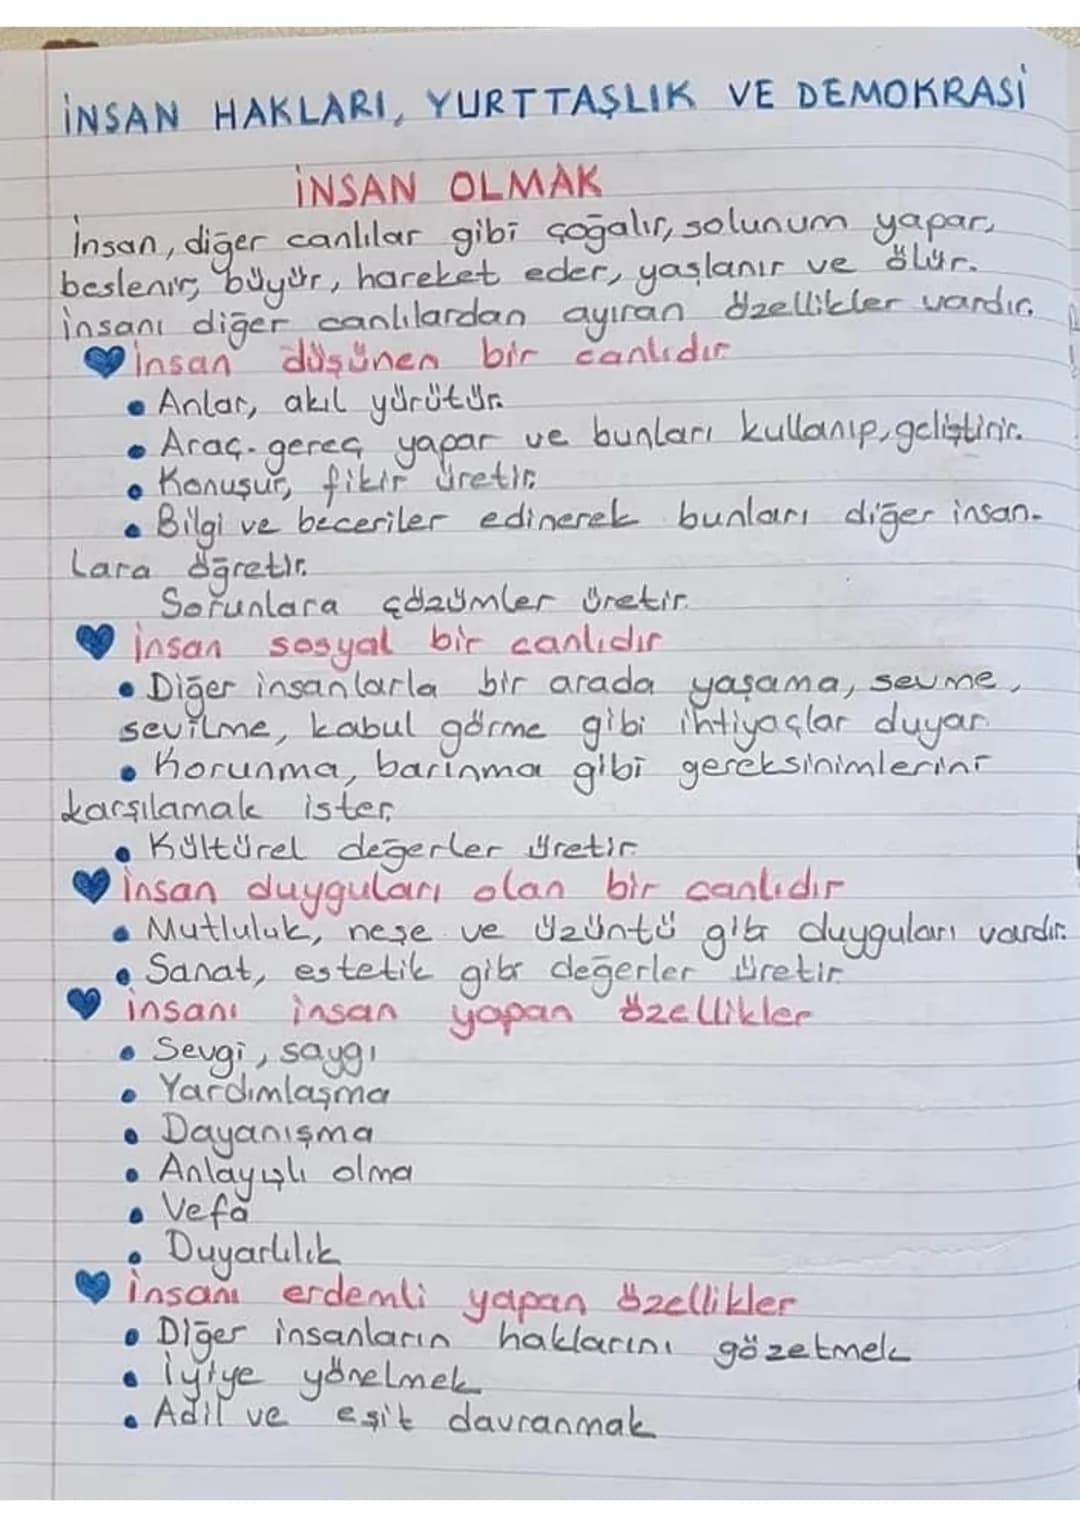 İNSAN HAKLARI, YURTTAŞLIK VE DEMOKRASİ
İNSAN OLMAK
İnsan, diğer canlılar gibi çoğalır, solunum yapar,
beslenir, büyür, hareket eder, yaşlanır ve ölür.
İnsanı diğer canlılardan ayıran özellikler vardır.
💙 İnsan düşünen bir canlıdır
• Anlar, akıl yürütür.
• Araç-gereç yapar ve bunları kullanıp, geliştirir.
• Konuşur, fikir üretir.
• Bilgi ve beceriler edinerek bunları diğer insan-
lara öğretir.
Sorunlara çözümler üretir.
💙 İnsan sosyal bir canlıdır
• Diğer insanlarla bir arada yaşama, sevme,
sevilme, kabul görme gibi ihtiyaçlar duyar.
• Korunma, barınma gibi gereksinimlerini
karşılamak ister.
• Kültürel değerler üretir.
💙 İnsan duyguları olan bir canlıdır
• Mutluluk, neşe ve üzüntü gibi duyguları vardır.
• Sanat, estetik gibi değerler üretir.
💙 İnsanı insan yapan özellikler
• Sevgi, saygı
• Yardımlaşma
• Dayanışma
• Anlayışlı olma
• Vefa
• Duyarlılık
💙 İnsanı erdemli yapan özellikler
• Diğer insanların haklarını gözetmek
• İyiye yönelmek
• Adil ve eşit davranmak